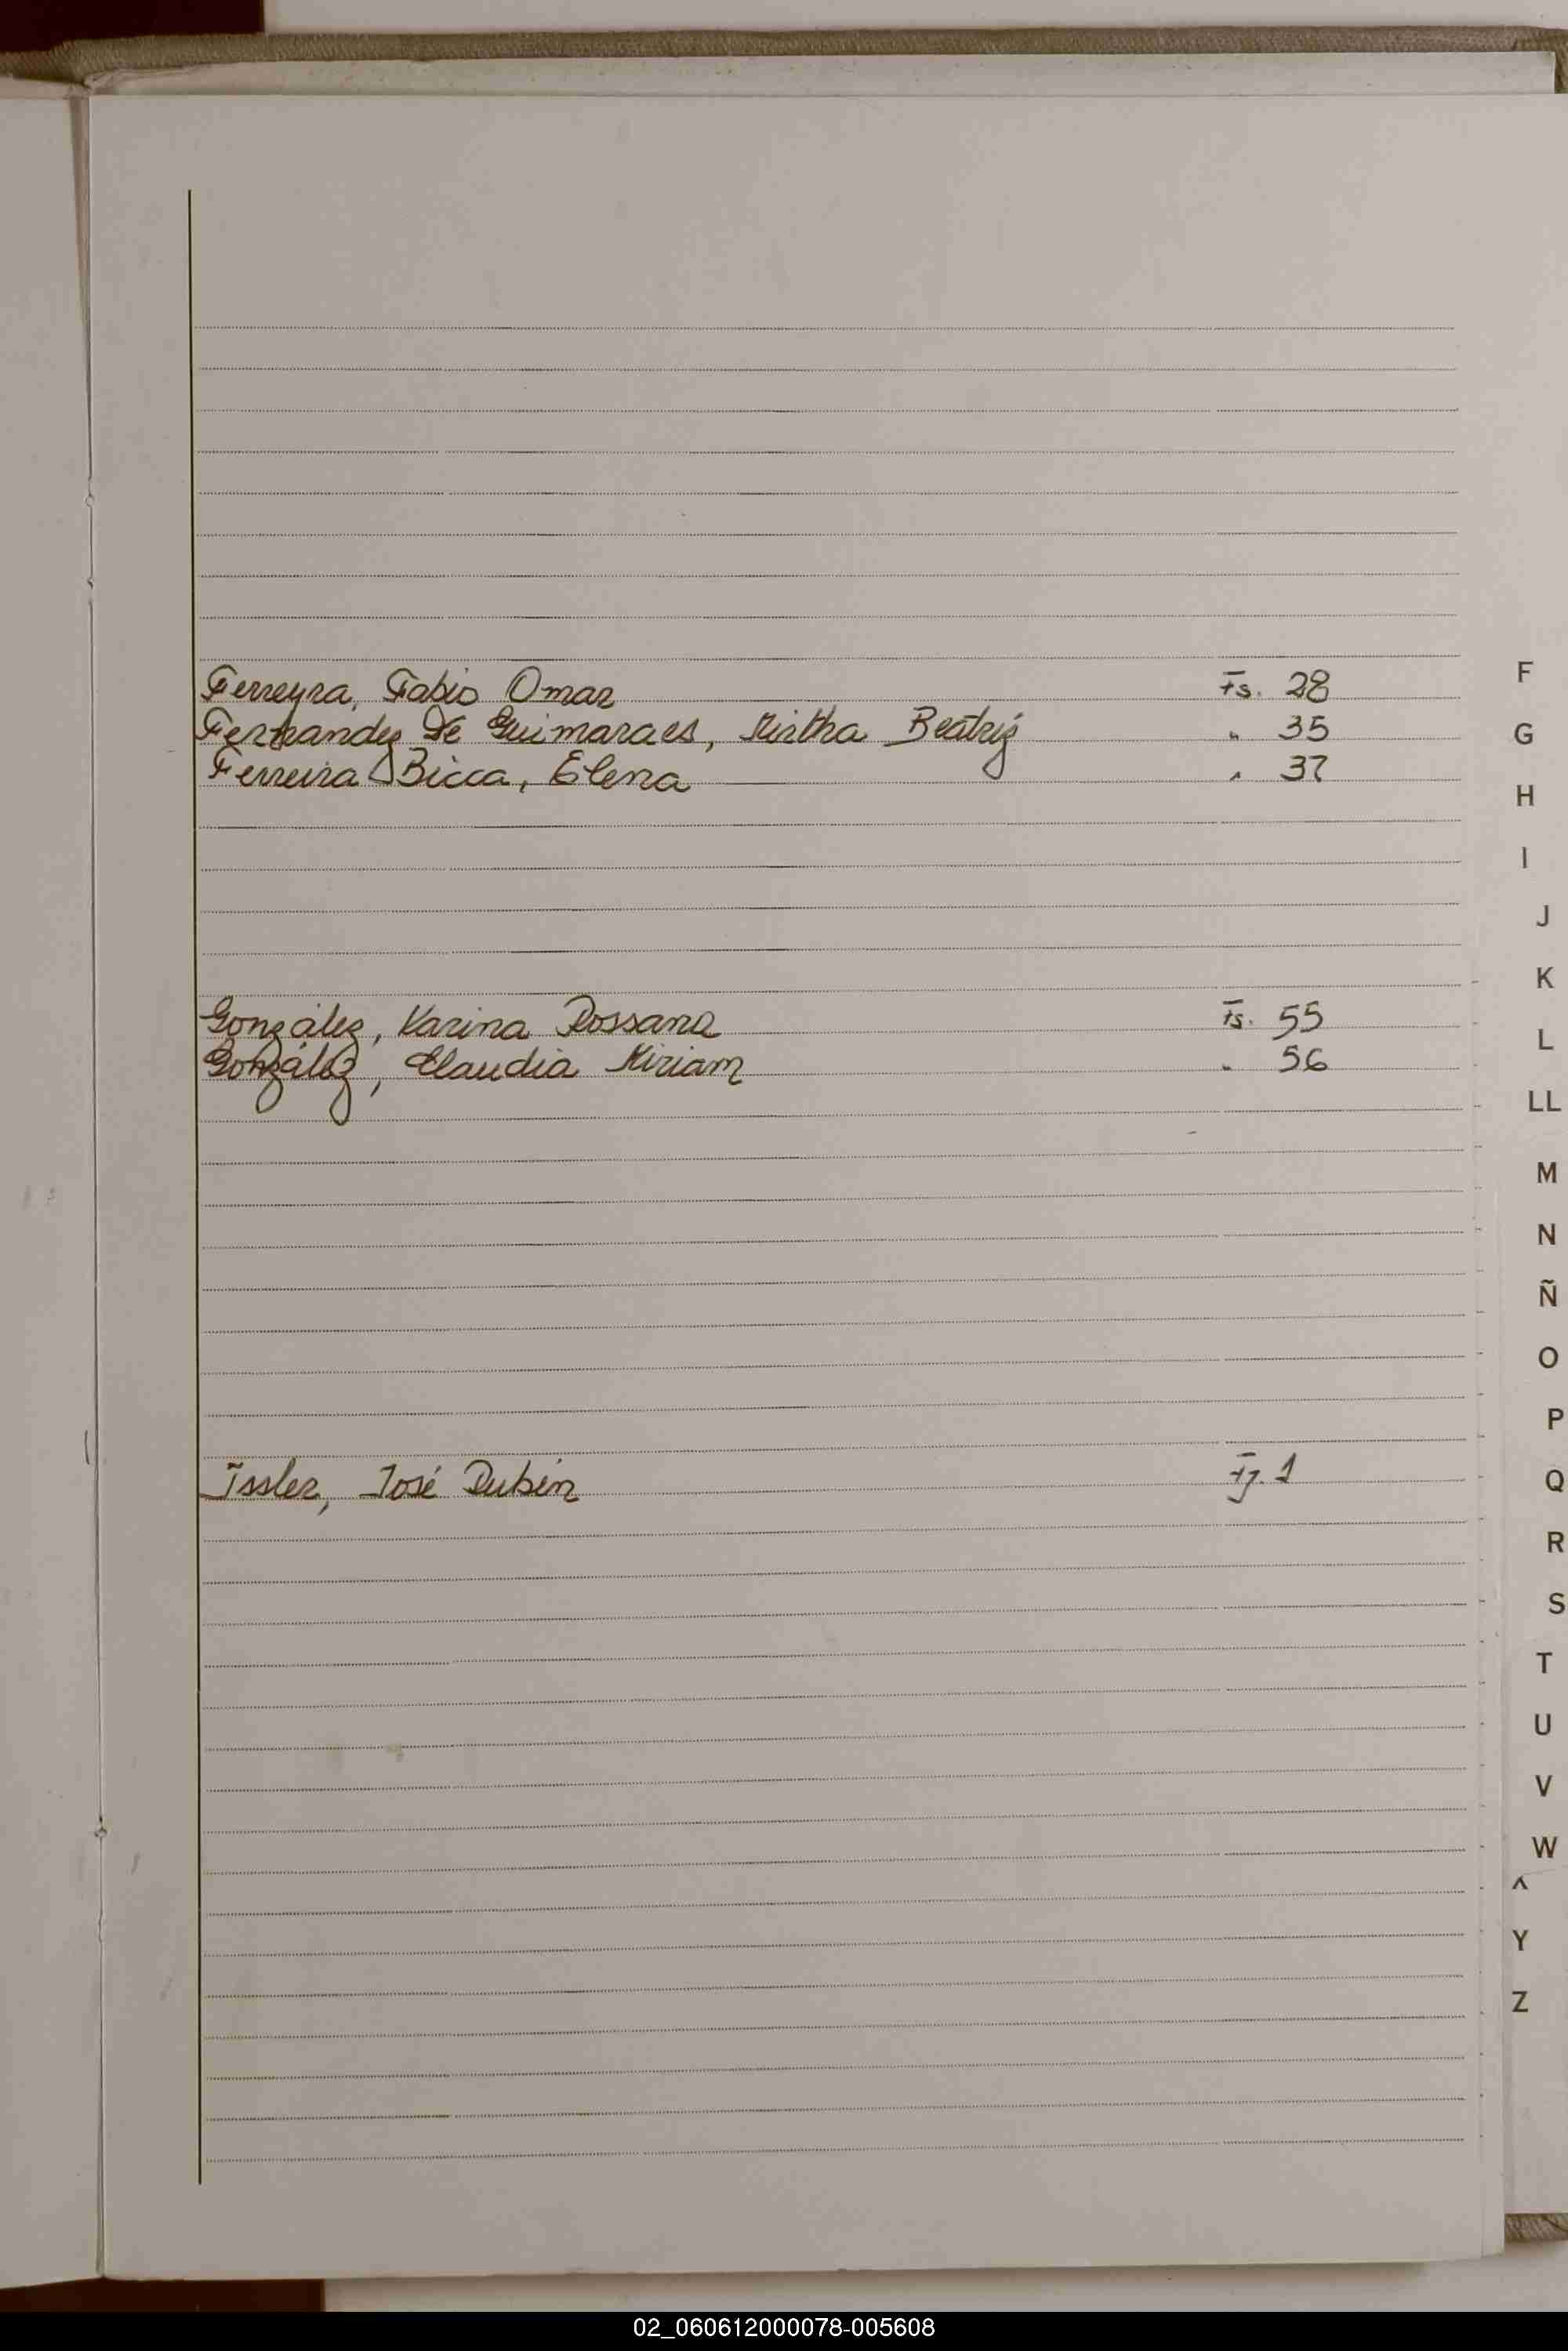 Ferreyra, Fabio Omar Fs. 28
Fernandez De Guimaraes, Mirtha Beatriz " 35
Ferreira Bicca, Elena " 37
González, Karina Rossana Fs. 55
González, Claudia Miriam " 56
Issler, José Rubén Fj. 1
F
G
H
I
J
K
L
LL
M
N
Ñ
O
P
Q
R
S
T
U
V
W
Y
Z
02_060612000078-005608